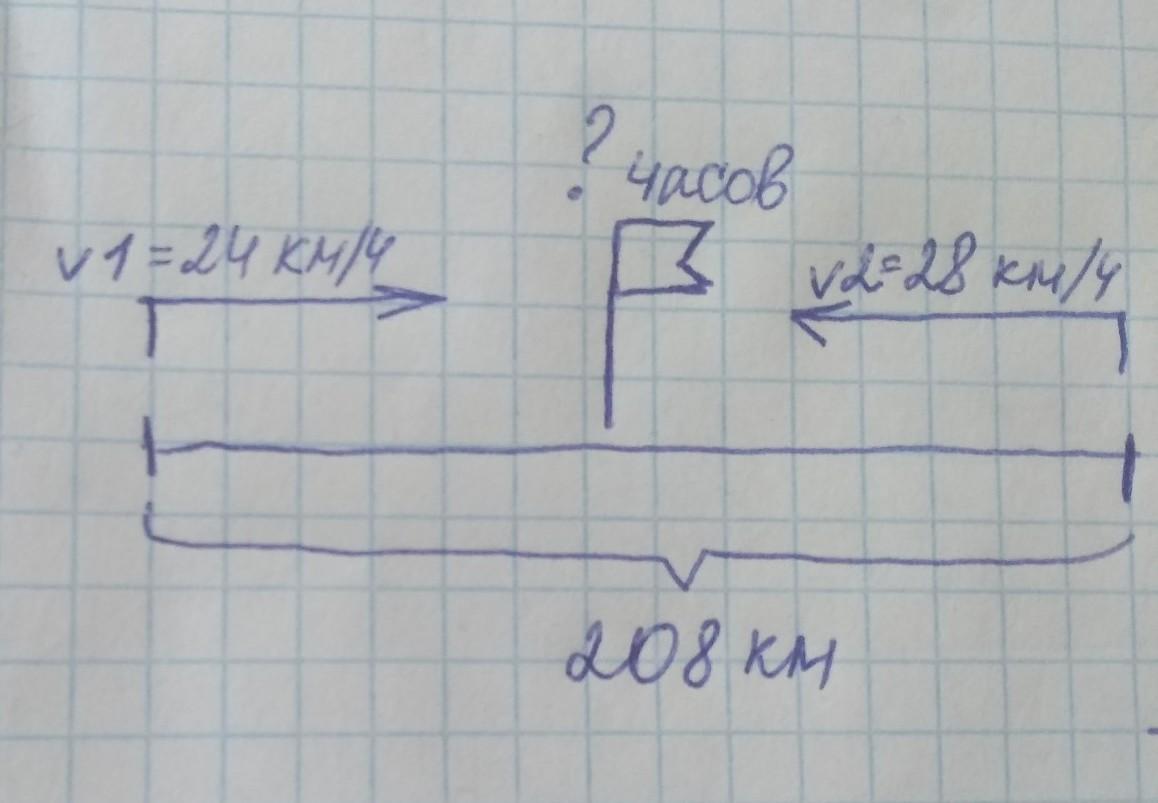 ? часов
v1 = 24 км/ч
v2 = 28 км/ч
208 км